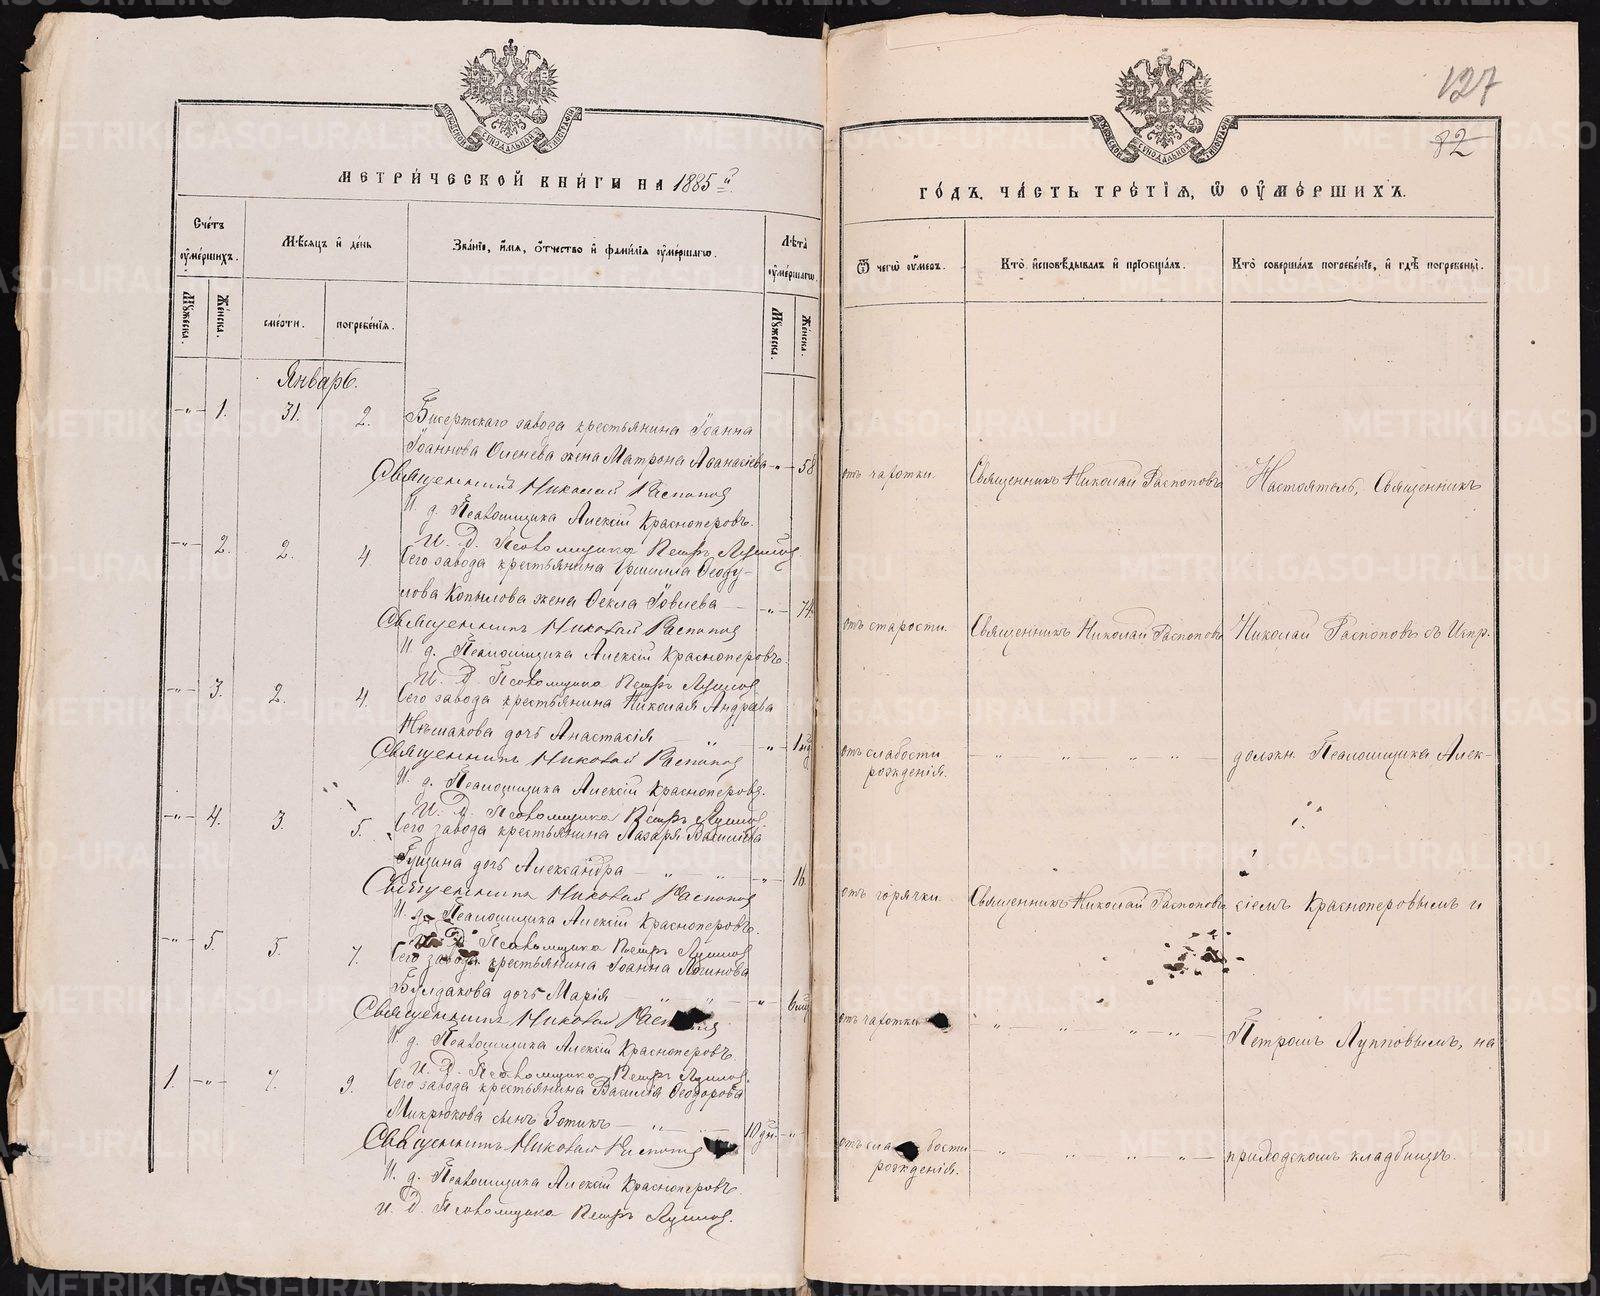 МЕТРИ́ЧЕСКОЙ КНИ́ГИ НА 1885й
Сче́тъ ᲂу҆ме́ршихъ.
Мѣ́сяцъ и҆ де́нь
Зва́нїе, и҆́мя, ѻ҆́тчество и҆ фами́лїя ᲂу҆ме́ршагѡ.
Лѣ́та ᲂу҆ме́ршагѡ.
Мꙋ́жеска.
Же́нска.
сме́рти.
погребе́нїя.
Мꙋ́жеска.
Же́нска.
Январь.
-"- 1. 31. 2. Бисертскаго завода крестьянина Іоанна
Іоаннова Оленева жена Матрона Аѳанасіева -"- 58
Священникъ Николай Распопов
И. д. Псаломщика Алексій Красноперовъ.
И. Д. Псаломщика Петръ Луппов
-"- 2. 2. 4. Сего завода крестьянина Ѳеоду-
лова Копылова жена Ѳекла Іовлева -"- 74
Священникъ Николай Распопов
И. д. Псаломщика Алексій Красноперовъ.
И. Д. Псаломщика Петръ Луппов
-"- 3. 2. 4. Сего завода крестьянина Николая Андреева
дочь Анастасія -"- 1 нд
Священникъ Николай Распопов
И. д. Псаломщика Алексій Красноперовъ.
И. Д. Псаломщика Петръ Луппов.
-"- 4. 3. 5. Сего завода крестьянина Лазаря Василіева
дочь Александра -"- 16
Священникъ Николай Распопов
И. д. Псаломщика Алексій Красноперовъ.
И. Д. Псаломщика Петръ Луппов
-"- 5. 5. 7. Сего завода крестьянина Іоанна Логинова
Булдакова дочь Марія -"- 6 мц
Священникъ Николай
И. д. Псаломщика Алексій Красноперовъ.
И. Д. Псаломщика Петръ Луппов.
1. -"- 7. 9. Сего завода крестьянина Василія Ѳеодорова
Микрюкова сынъ Зотикъ 10 дн. -"-
Священникъ Николай Распопов
И. д. Псаломщика Алексій Красноперовъ.
И. Д. Псаломщика Петръ Луппов.
127
82
ГО́ДЪ, ЧА́СТЬ ТРЕ́ТЇЯ, Ѡ҆ ОУ҆МЕ́РШИХЪ.
Ѿ чегѡ̀ ᲂу҆́меръ.
Кто̀ и҆сповѣ́дывалъ и҆ прїѡбща́лъ.
Кто̀ соверша́лъ погребе́нїе, и҆ гдѣ̀ погребены̀.
отъ чахотки. Священникъ Николай Распоповъ Настоятель, Священникъ
отъ старости. Священникъ Николай Распоповъ Николай Распоповъ съ Испр.
отъ слабости рожденія. -"- -"- должн. Псаломщика Алек-
отъ горячки. Священникъ Николай Распоповъ сіемъ Красноперовымъ и
отъ чахотки -"- -"- Петромъ Лупповымъ, на
отъ слабости рожденія. -"- -"- приходскомъ кладбищѣ.